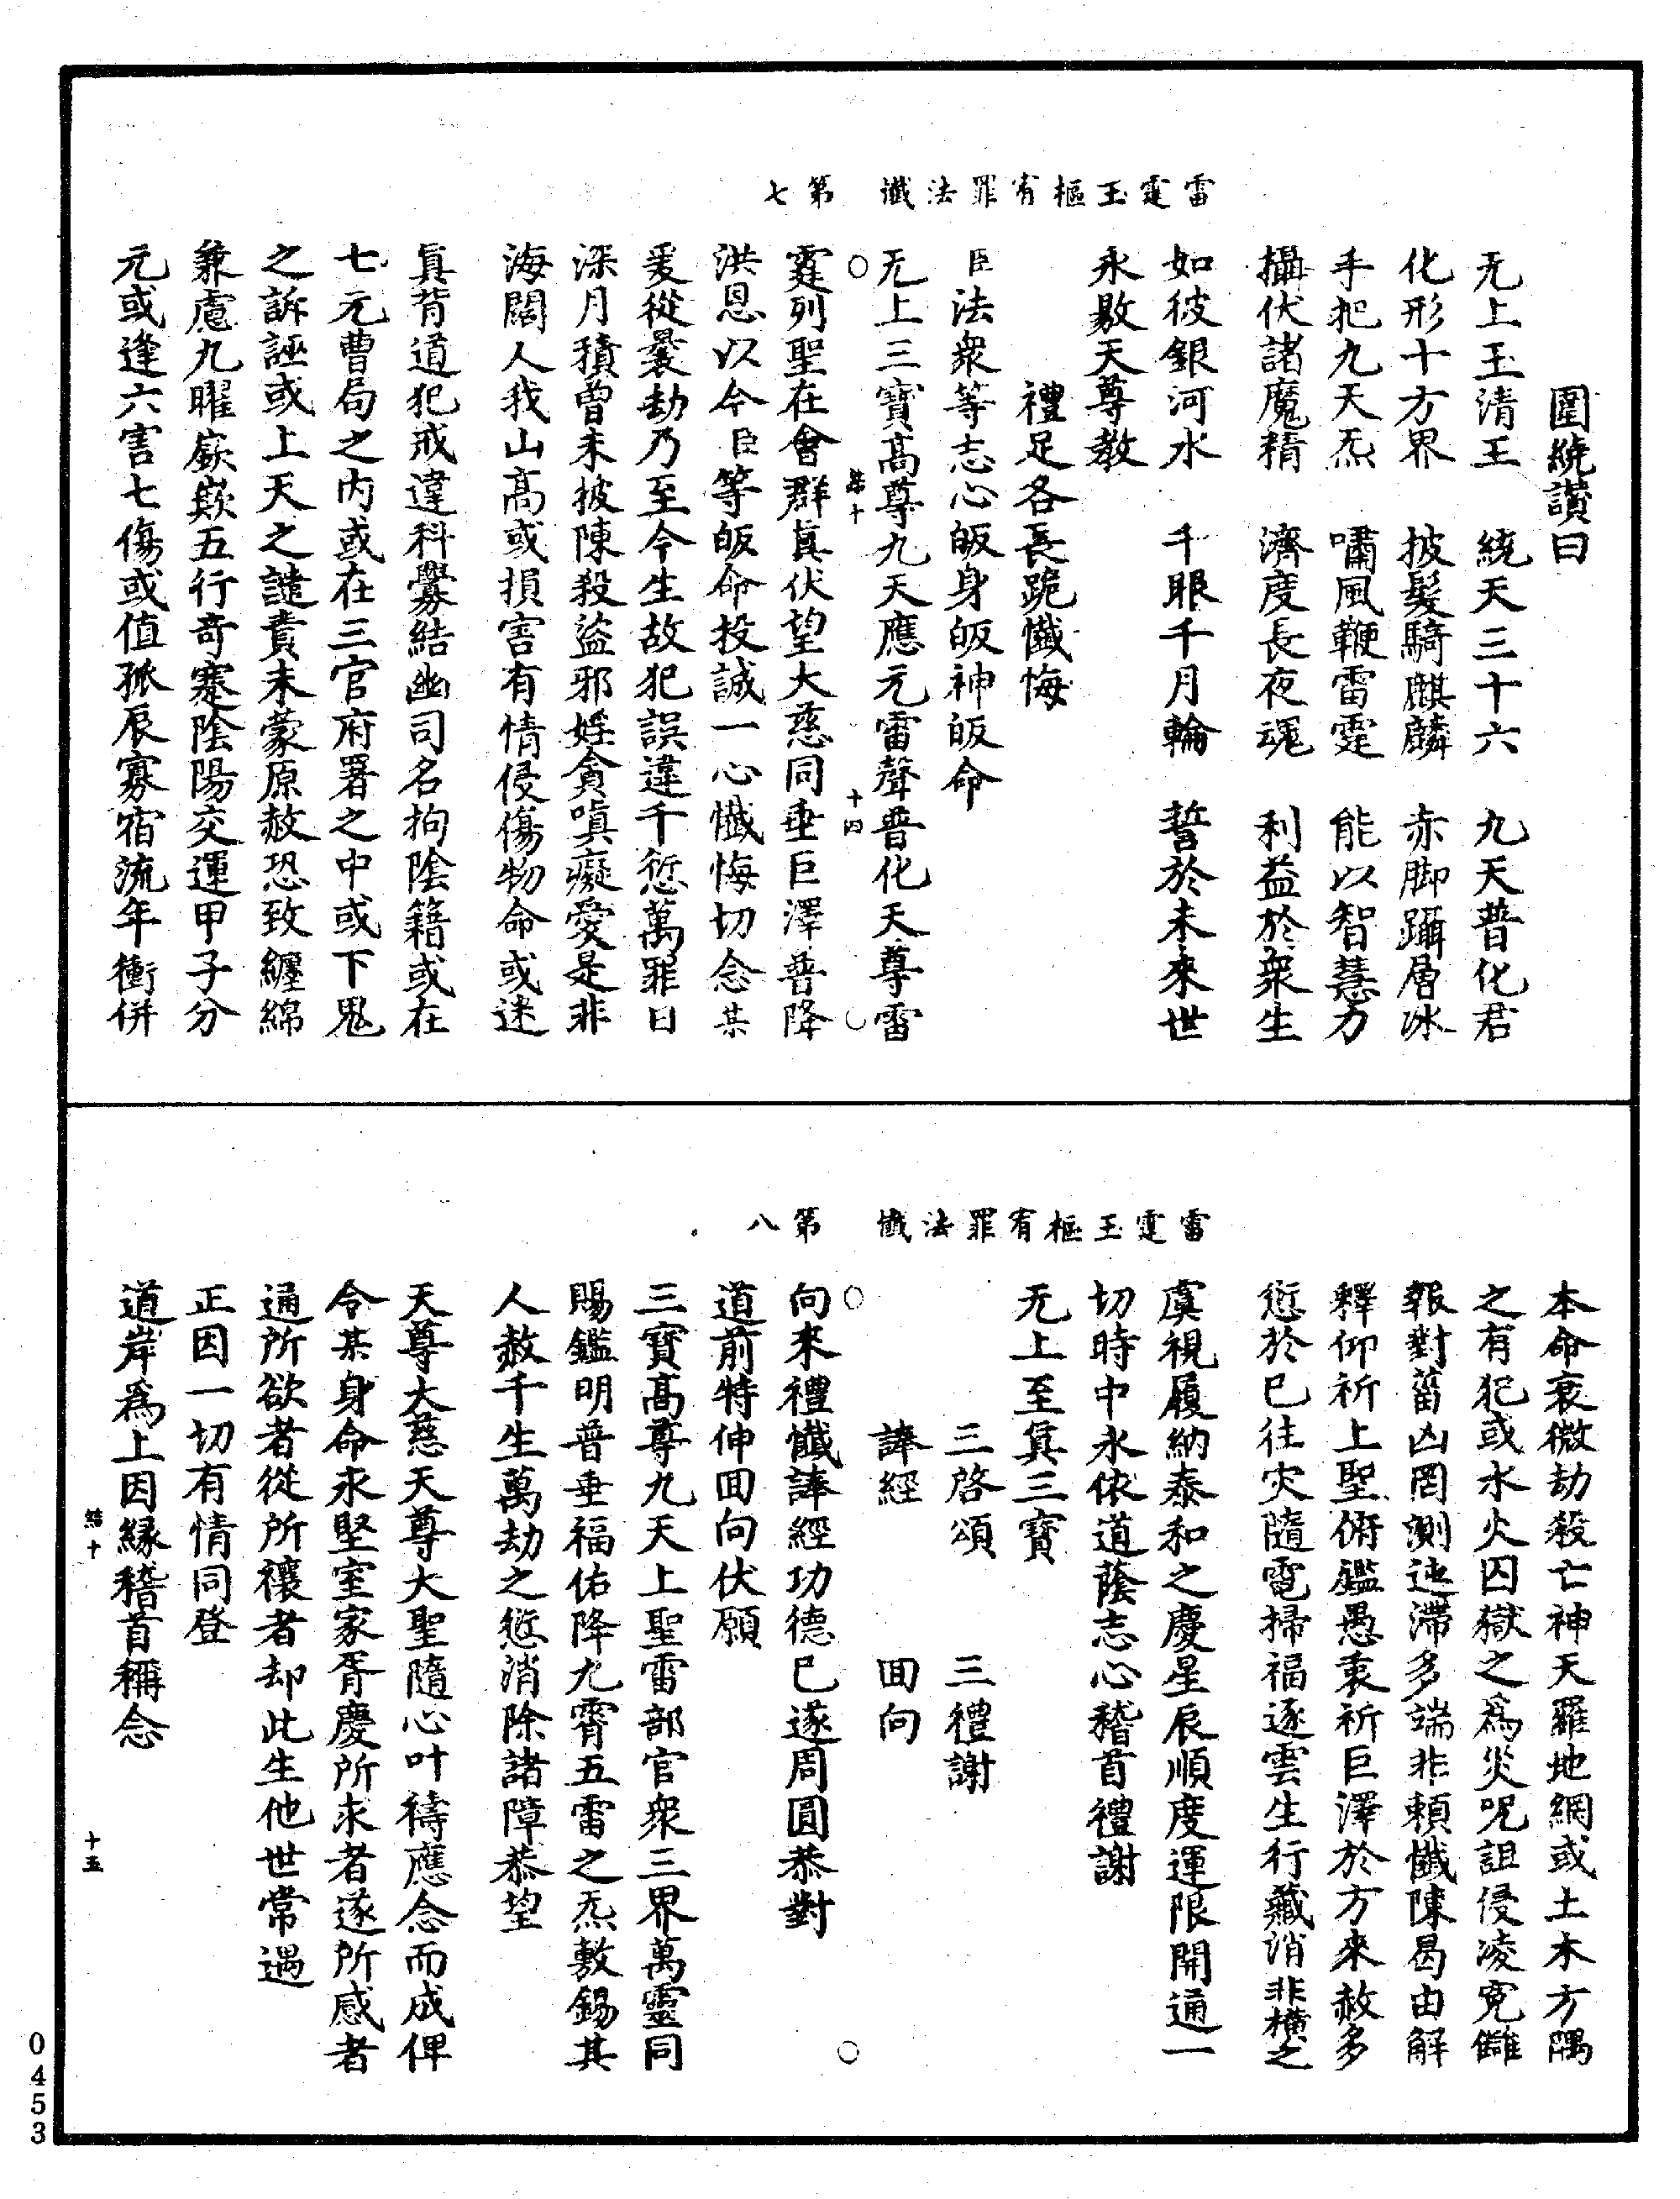 雷霆玉樞宥罪法懺　第七
圍繞讚曰
无上玉清王　統天三十六　九天普化君
化形十方界　披髮騎麒麟　赤脚躡層冰
手把九天炁　嘯風鞭雷霆　能以智慧力
攝伏諸魔精　濟度長夜魂　利益於衆生
如彼銀河水　千眼千月輪　誓於未來世
永敭天尊教
禮足各長跪懺悔
臣法衆等志心皈身皈神皈命
无上三寶高尊九天應元雷聲普化天尊雷
結十　十四
霆列聖在會群真伏望大慈同垂巨澤普降
洪恩以今臣等皈命投誠一心懺悔切念某
爰從曩劫乃至今生故犯誤違千愆萬罪日
深月積曾未披陳殺盜邪婬貪嗔癡愛是非
海闊人我山高或損害有情侵傷物命或迷
真背道犯戒違科釁結幽司名拘陰籍或在
七元曹局之內或在三官府署之中或下鬼
之訴誣或上天之譴責未蒙原赦恐致纏綿
兼慮九曜嶔嶔五行奇蹇陰陽交運甲子分
元或逢六害七傷或值孤辰寡宿流年衝併
雷霆玉樞宥罪法懺　第八
本命衰微劫殺亡神天羅地網或土木方隅
之有犯或水火囚獄之爲災呪詛侵凌冤讎
報對菑凶罔測迍滯多端非賴懺陳曷由解
釋仰祈上聖俯鑑愚衷祈巨澤於方來赦多
愆於已往灾隨電掃福逐雲生行藏消非橫之
虞視履納泰和之慶星辰順度運限開通一
切時中永依道蔭志心稽首禮謝
无上至真三寶
三啓頌　三禮謝
諱經　回向
向來禮懺諱經功德已遂周圓恭對
道前特伸回向伏願
三寶高尊九天上聖雷部官衆三界萬靈同
賜鑑明普垂福佑降九霄五雷之炁敷錫其
人赦千生萬劫之愆消除諸障恭望
天尊大慈天尊大聖隨心叶禱應念而成俾
令某身命永堅室家胥慶所求者遂所感者
通所欲者從所禳者却此生他世常遇
正因一切有情同登
道岸爲上因緣稽首稱念
結十　十五
0453